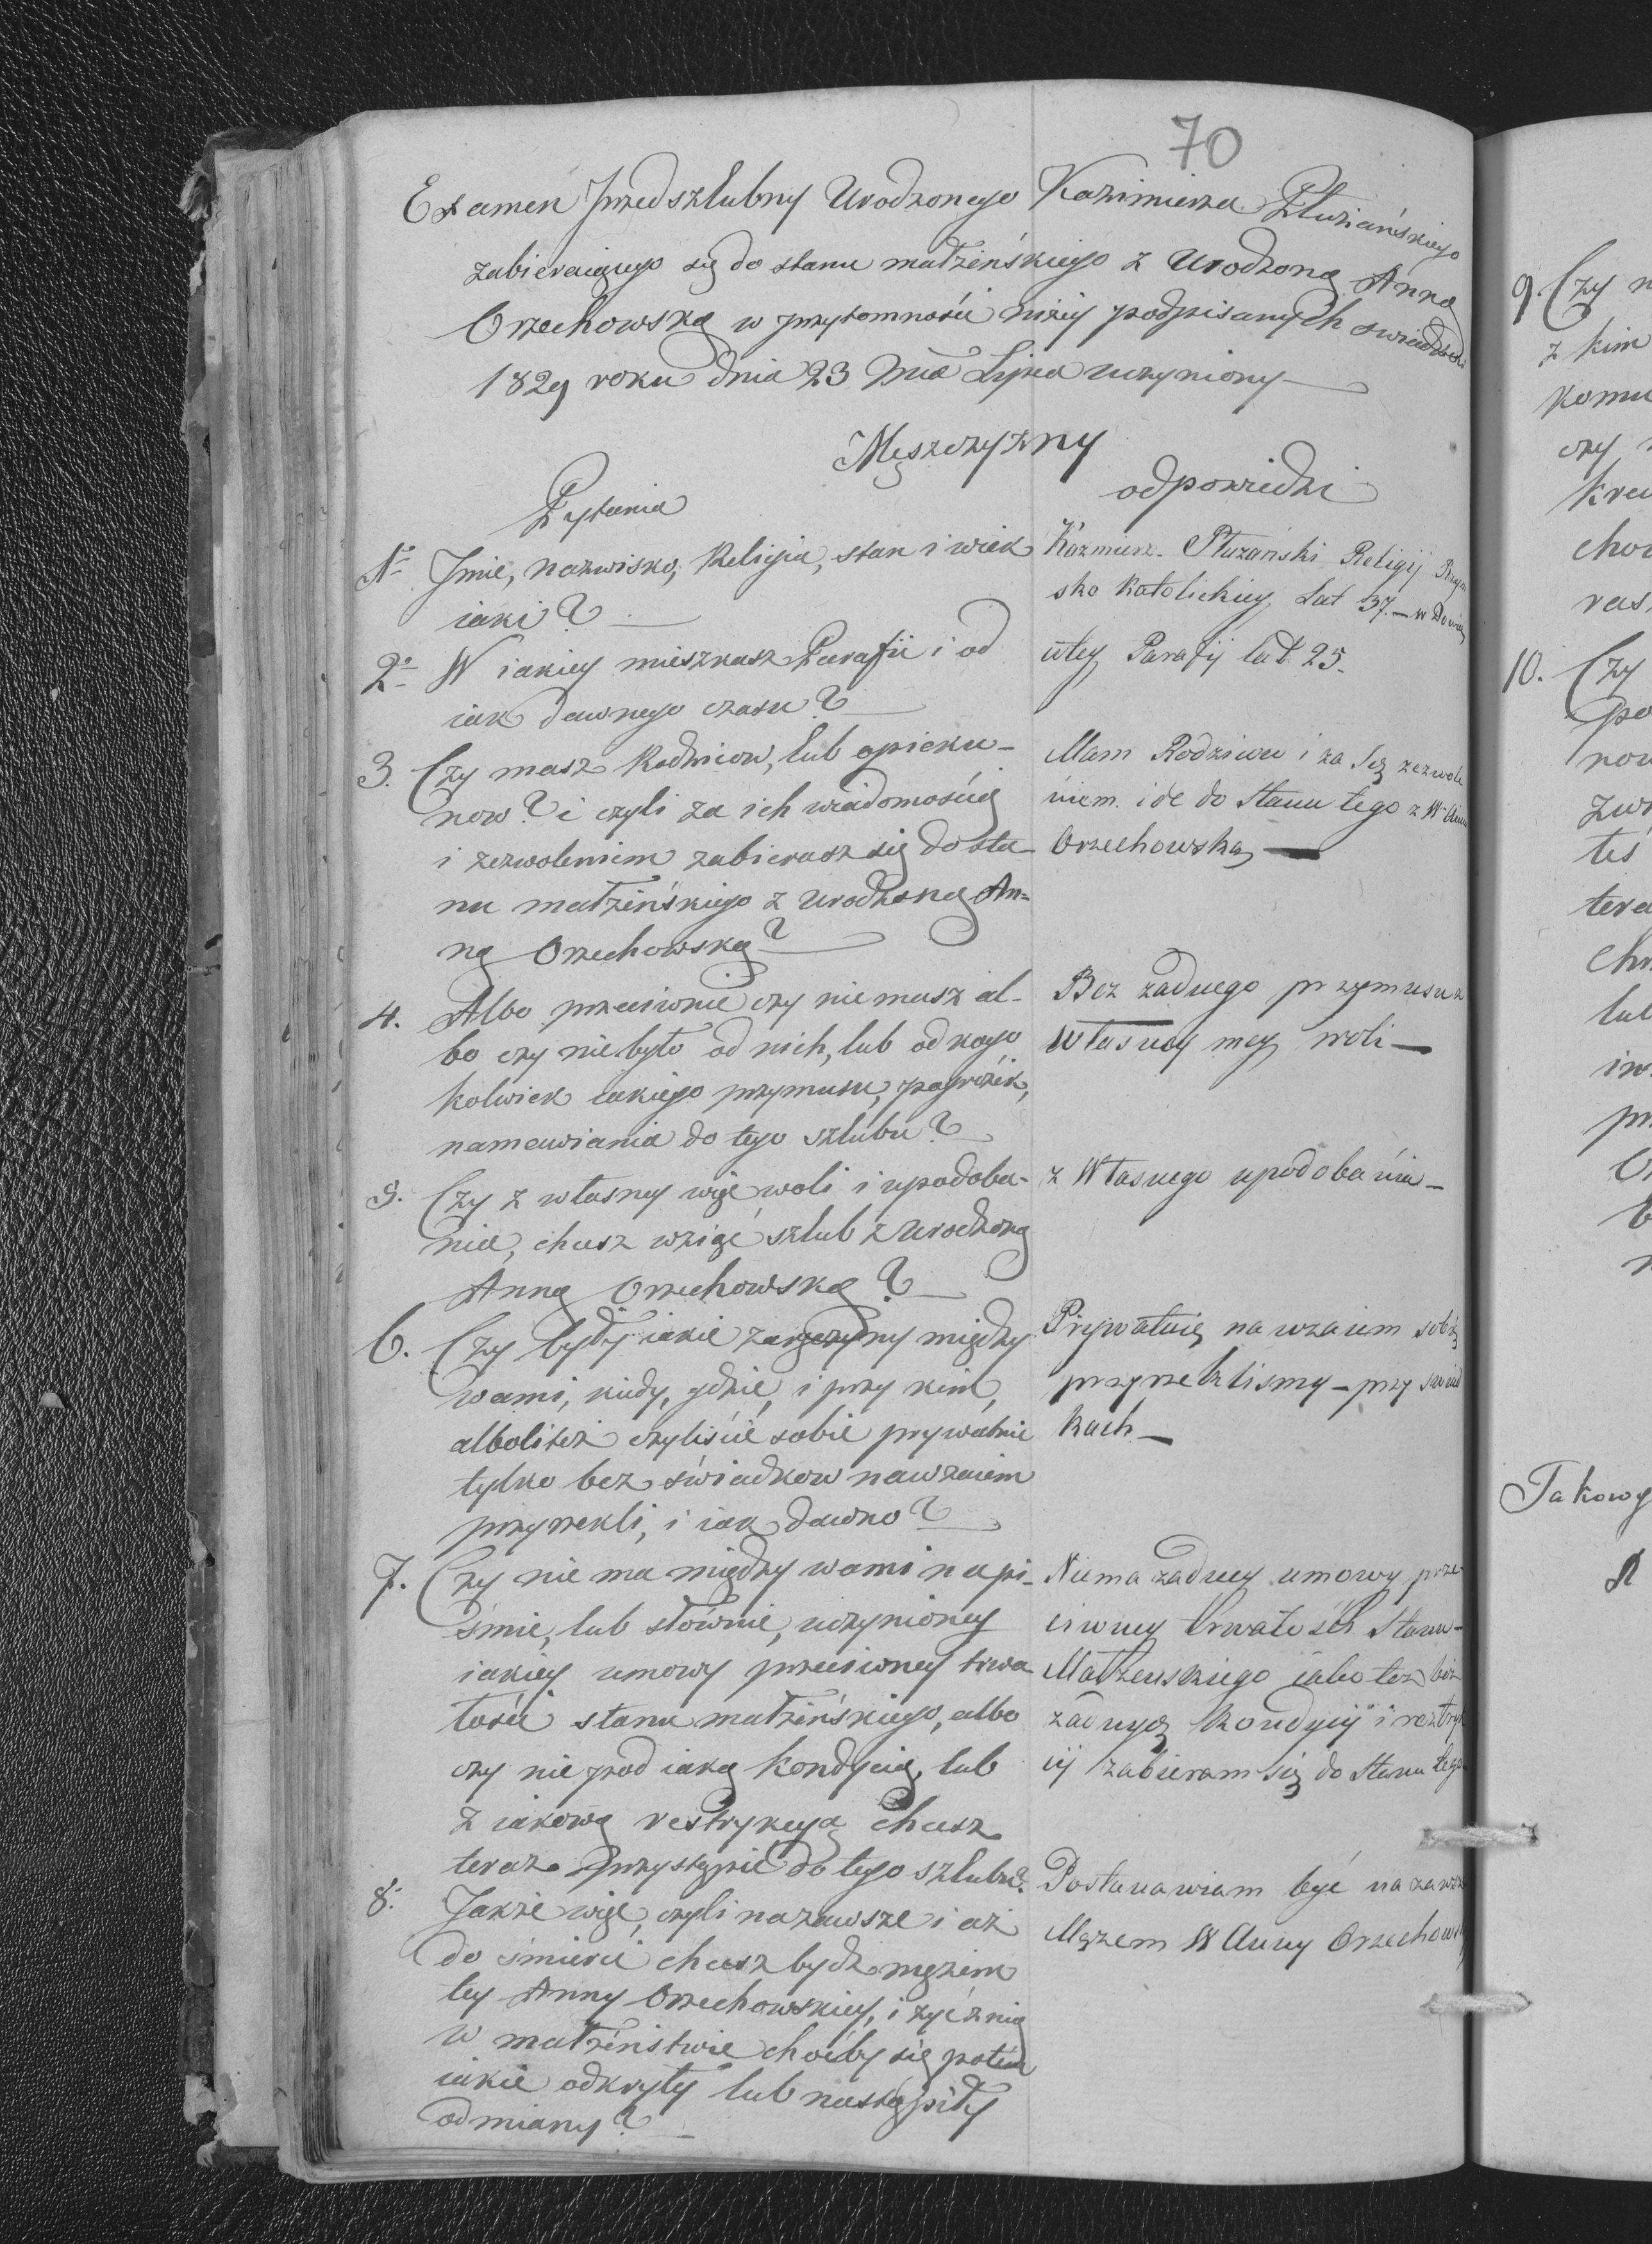 70
Examen Przedszlubny Urodzonego Kazimierza Płuziańskiego
zabieraiącego się do stanu małżeńskiego z Urodzoną Anną
Orzechowską w przytomności niżey podpisanych swiadkow
1829 roku dnia 23 Mca Lipca uczyniony
Męszczyzny
Pytania
odpowiedzi
1° Jmie, nazwisko, Religia, stan i wiek
iaki?
Kazmierz Płuzański Religij Rzym
sko Katolickiey Lat 37.
2° W iakiey mieszkasz Parafii i od
iak dawnego czasu?
wtey Parafij lat 25.
3. Czy masz Rodzicow, lub opieku-
now? i czyli za ich wiadomością
i zezwoleniem zabierasz się do sta-
nu małżeńskiego z Urodzoną An=
ną Orzechowską?
Mam Rodzicow i za Jch zezwole
niem ide do Stanu tego z W Anną
Orzechowską
4. Albo przeciwnie czy nie masz al-
bo czy nie było od nich, lub od kogo
kolwiek iakiego przymusu, pogrożek,
namawiania do tego szlubu?
Bez żadnego przymusu z
Własney mey woli
5. Czy z własney więc woli i upodoba-
nia, chcesz wziąć szlub z Urodzoną
Anną Orzechowską?
z Własnego upodobania
6. Czy były iakie zaręczyny między
wami, kiedy, gdzie, i przy kim,
alboliteż czyliście sobie prywatnie
tylko bez świadkow nawzaiem
przyrzekli, i iak dawno?
Prywatnie nawzaiem sobie
przyrzeklismy - przy swiad
kach
7. Czy nie ma między wami na pi-
śmie, lub słownie, uczynioney
iakiey umowy przeciwney trwa-
łości stanu małżeńskiego, albo
czy nie pod iaką kondycią, lub
z iakową restrykcyą chcesz
teraz przystąpić do tego szlubu?
Niema żadney umowy prze-
ciwney trwałości Stanu
Małżenskiego iako też bez
żadnych Kondycij i restryk
cij zabieram się do Stanu tego
8. Jakże więc, czyli nazawsze i aż
do śmierci chcesz bydź mężem
tey Anny Orzechowskiey, i żyć z nią
w małżeństwie choćby się potem
iakie odkryły lub nastąpiły
odmiany?
Postanawiam być na zawsze
Mężem W Anny Orzechowsk
9. Czy
z kim
komu
czy
10. Czy
Takowy